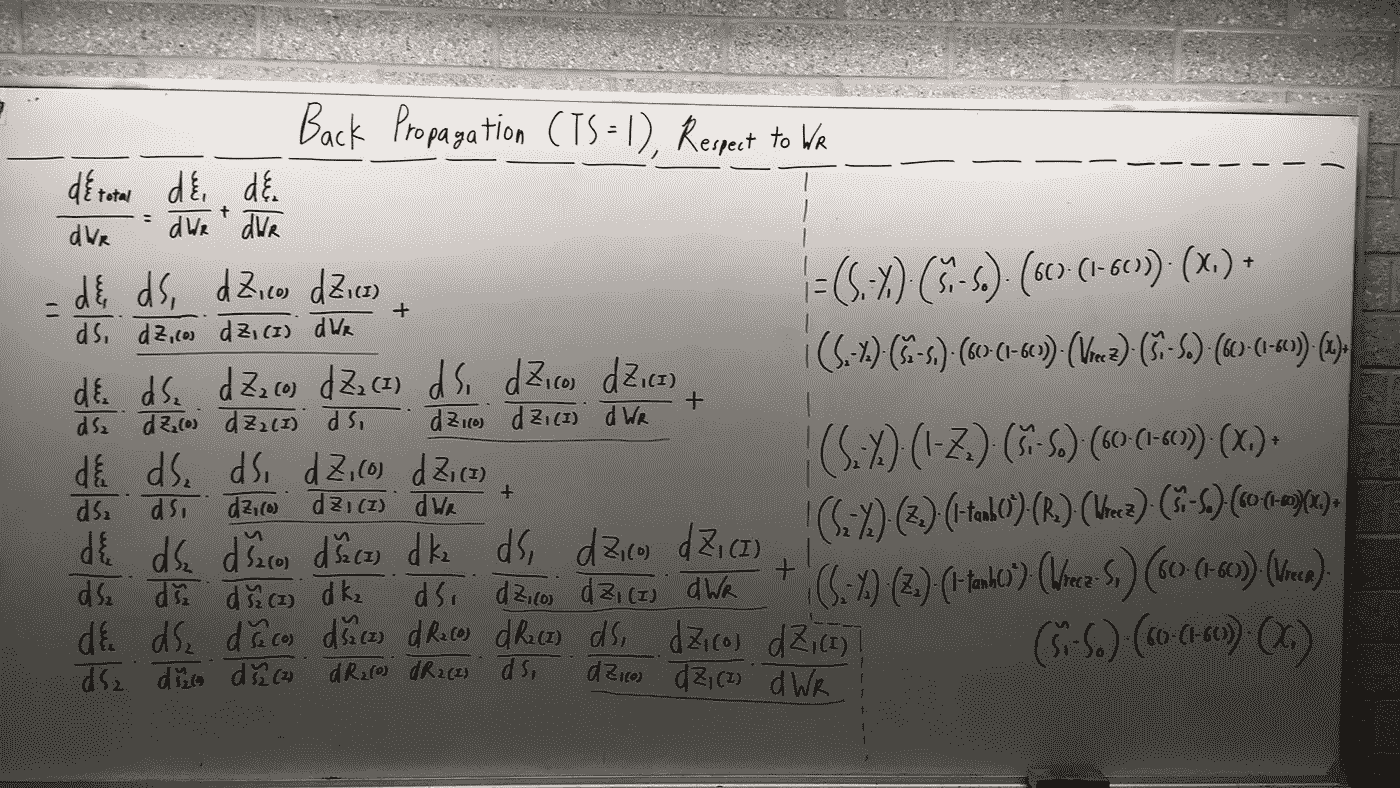 Back Propagation (TS=1), Respect to WR
dξtotal/dWR = dξ1/dWR + dξ2/dWR
= dξ1/dS1 · dS1/dZ1(O) · dZ1(O)/dZ1(I) · dZ1(I)/dWR +
dξ2/dS2 · dS2/dZ2(O) · dZ2(O)/dZ2(I) · dZ2(I)/dS1 · dS1/dZ1(O) · dZ1(O)/dZ1(I) · dZ1(I)/dWR +
dξ2/dS2 · dS2/dS1 · dS1/dZ1(O) · dZ1(O)/dZ1(I) · dZ1(I)/dWR +
dξ2/dS2 · dS2/dS̃2 · dS̃2(O)/dS̃2(I) · dS̃2(I)/dk2 · dk2/dS1 · dS1/dZ1(O) · dZ1(O)/dZ1(I) · dZ1(I)/dWR +
dξ2/dS2 · dS2/dS̃2(O) · dS̃2(O)/dS̃2(I) · dS̃2(I)/dR2(O) · dR2(O)/dR2(I) · dR2(I)/dS1 · dS1/dZ1(O) · dZ1(O)/dZ1(I) · dZ1(I)/dWR
= (S1-Y1) · (S̃1-S0) · (6()·(1-6())) · (X1) +
(S2-Y2) · (S̃2-S1) · (6()·(1-6())) · (Wrecz) · (S̃1-S0) · (6()·(1-6())) · (X1)+
(S2-Y2) · (1-Z2) · (S̃1-S0) · (6()·(1-6())) · (X1) +
(S2-Y2) · (Z2) · (1-tanh()²) · (R2) · (Wrecz) · (S̃1-S0) · (6()·(1-6()))(X1)+
(S2-Y2) · (Z2) · (1-tanh()²) · (Wrecz·S1) (6()·(1-6())) · (WrecR) ·
(S̃1-S0) · (6()·(1-6())) · (X1)